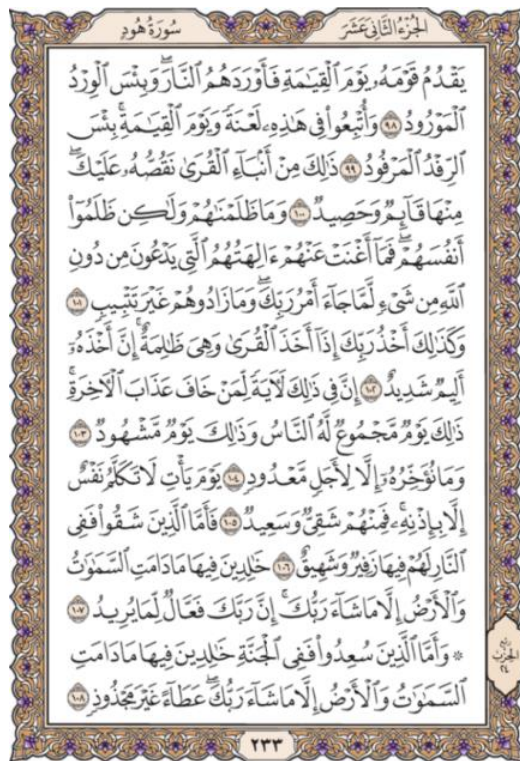 الجزء الثاني عشر
سورة هود
يَقْدُمُ قَوْمَهُۥ يَوْمَ ٱلْقِيَٰمَةِ فَأَوْرَدَهُمُ ٱلنَّارَ ۖ وَبِئْسَ ٱلْوِرْدُ
ٱلْمَوْرُودُ ٩٨ وَأُتْبِعُوا۟ فِى هَٰذِهِۦ لَعْنَةً وَيَوْمَ ٱلْقِيَٰمَةِ ۚ بِئْسَ
ٱلرِّفْدُ ٱلْمَرْفُودُ ٩٩ ذَٰلِكَ مِنْ أَنۢبَآءِ ٱلْقُرَىٰ نَقُصُّهُۥ عَلَيْكَ ۖ
مِنْهَا قَآئِمٌ وَحَصِيدٌ ١٠٠ وَمَا ظَلَمْنَٰهُمْ وَلَٰكِن ظَلَمُوٓا۟
أَنفُسَهُمْ ۖ فَمَآ أَغْنَتْ عَنْهُمْ ءَالِهَتُهُمُ ٱلَّتِى يَدْعُونَ مِن دُونِ
ٱللَّهِ مِن شَىْءٍ لَّمَّا جَآءَ أَمْرُ رَبِّكَ ۖ وَمَا زَادُوهُمْ غَيْرَ تَتْبِيبٍ ١٠١
وَكَذَٰلِكَ أَخْذُ رَبِّكَ إِذَآ أَخَذَ ٱلْقُرَىٰ وَهِىَ ظَٰلِمَةٌ ۚ إِنَّ أَخْذَهُۥٓ
أَلِيمٌ شَدِيدٌ ١٠٢ إِنَّ فِى ذَٰلِكَ لَءَايَةً لِّمَنْ خَافَ عَذَابَ ٱلْءَاخِرَةِ ۚ
ذَٰلِكَ يَوْمٌ مَّجْمُوعٌ لَّهُ ٱلنَّاسُ وَذَٰلِكَ يَوْمٌ مَّشْهُودٌ ١٠٣
وَمَا نُؤَخِّرُهُۥٓ إِلَّا لِأَجَلٍ مَّعْدُودٍ ١٠٤ يَوْمَ يَأْتِ لَا تَكَلَّمُ نَفْسٌ
إِلَّا بِإِذْنِهِۦ ۚ فَمِنْهُمْ شَقِىٌّ وَسَعِيدٌ ١٠٥ فَأَمَّا ٱلَّذِينَ شَقُوا۟ فَفِى
ٱلنَّارِ لَهُمْ فِيهَا زَفِيرٌ وَشَهِيقٌ ١٠٦ خَٰلِدِينَ فِيهَا مَا دَامَتِ ٱلسَّمَٰوَٰتُ
وَٱلْأَرْضُ إِلَّا مَا شَآءَ رَبُّكَ ۚ إِنَّ رَبَّكَ فَعَّالٌ لِّمَا يُرِيدُ ١٠٧
۞ وَأَمَّا ٱلَّذِينَ سُعِدُوا۟ فَفِى ٱلْجَنَّةِ خَٰلِدِينَ فِيهَا مَا دَامَتِ
ٱلسَّمَٰوَٰتُ وَٱلْأَرْضُ إِلَّا مَا شَآءَ رَبُّكَ ۖ عَطَآءً غَيْرَ مَجْذُوذٍ ١٠٨
ربع
الحزب
٢٤
٢٣٣